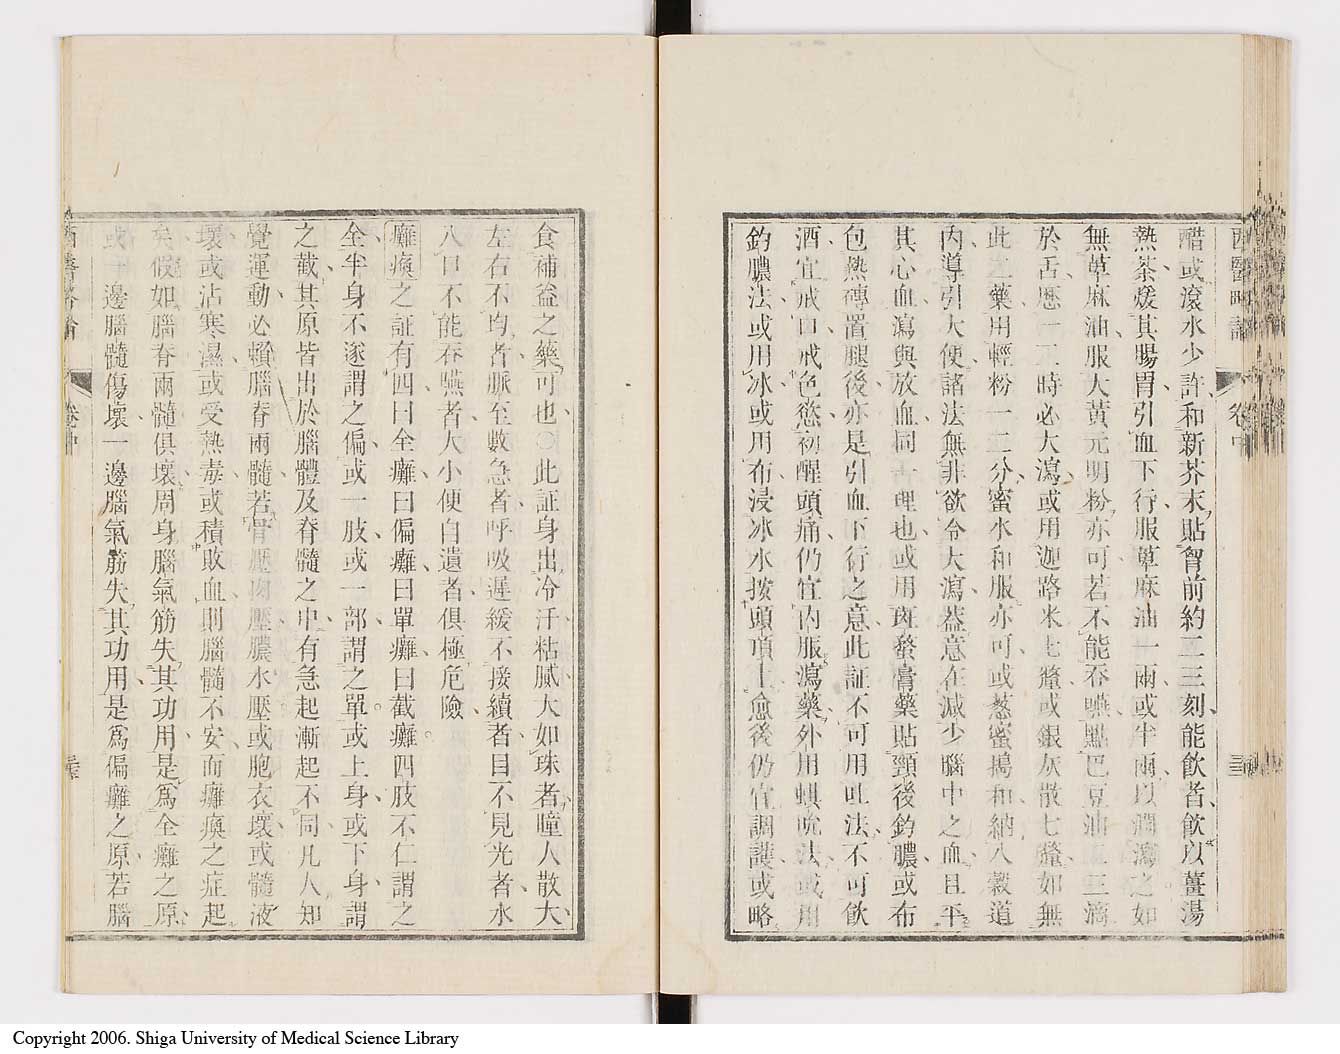 西醫略論 卷中 三
醋或滾水少許和新芥末貼胷前約二三刻能飮者飮以薑湯
熱茶煖其腸胃引血下行服萆麻油一兩或半兩以瀉之如
無萆麻油服大黃元明粉亦可若不能吞嚥點巴豆油三滴
於舌歷一二時必大瀉或用迦路米七釐或銀灰散七釐如無
此二藥用輕粉一二分蜜水和服亦可或葱蜜搗和納入穀道
內導引大便諸法無非欲令大瀉葢意在減少腦中之血且平
其心血瀉與放血同一理也或用斑蝥膏藥貼頸後釣膿或布
包熱磚置腿後亦是引血下行之意此証不可用吐法不可飮
酒宜戒口戒色慾初醒頭痛仍宜內服瀉藥外用蜞吮法或用
釣膿法或用冰或用布浸冰水按頭頂上愈後仍宜調護或略
食補益之藥可也〇此証身出冷汗粘膩大如珠者瞳人散大
左右不均者脈至數急者呼吸遲緩不接續者目不見光者水
入口不能吞嚥者大小便自遺者俱極危險
癱瘓之証有四曰全癱曰偏癱曰單癱曰截癱四肢不仁謂之
全半身不遂謂之偏或一肢或一部謂之單或上身或下身謂
之截其原皆出於腦體及脊髓之中有急起漸起不同凡人知
覺運動必賴腦脊兩髓若骨壓肉壓膿水壓或胞衣壞或髓液
壞或沾寒濕或受熱毒或積敗血則腦髓不安而癱瘓之症起
矣假如腦脊兩髓俱壞周身腦氣筋失其功用是爲全癱之原
或一邊腦髓傷壞一邊腦氣筋失其功用是爲偏癱之原若腦
西醫略論 卷中